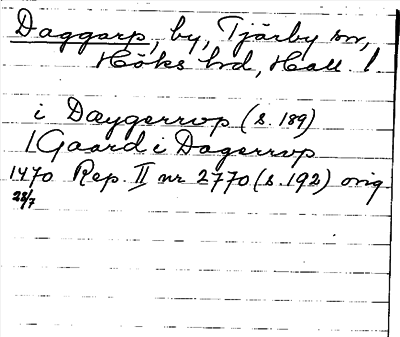 Daggarp, by, Tjärby sn,
Höks hd, Hall. /
i Dæygerrop (s. 189)
1 Gaard i Dagerrop
1470 Rep. II nr 2770 (s. 192) orig
28/7